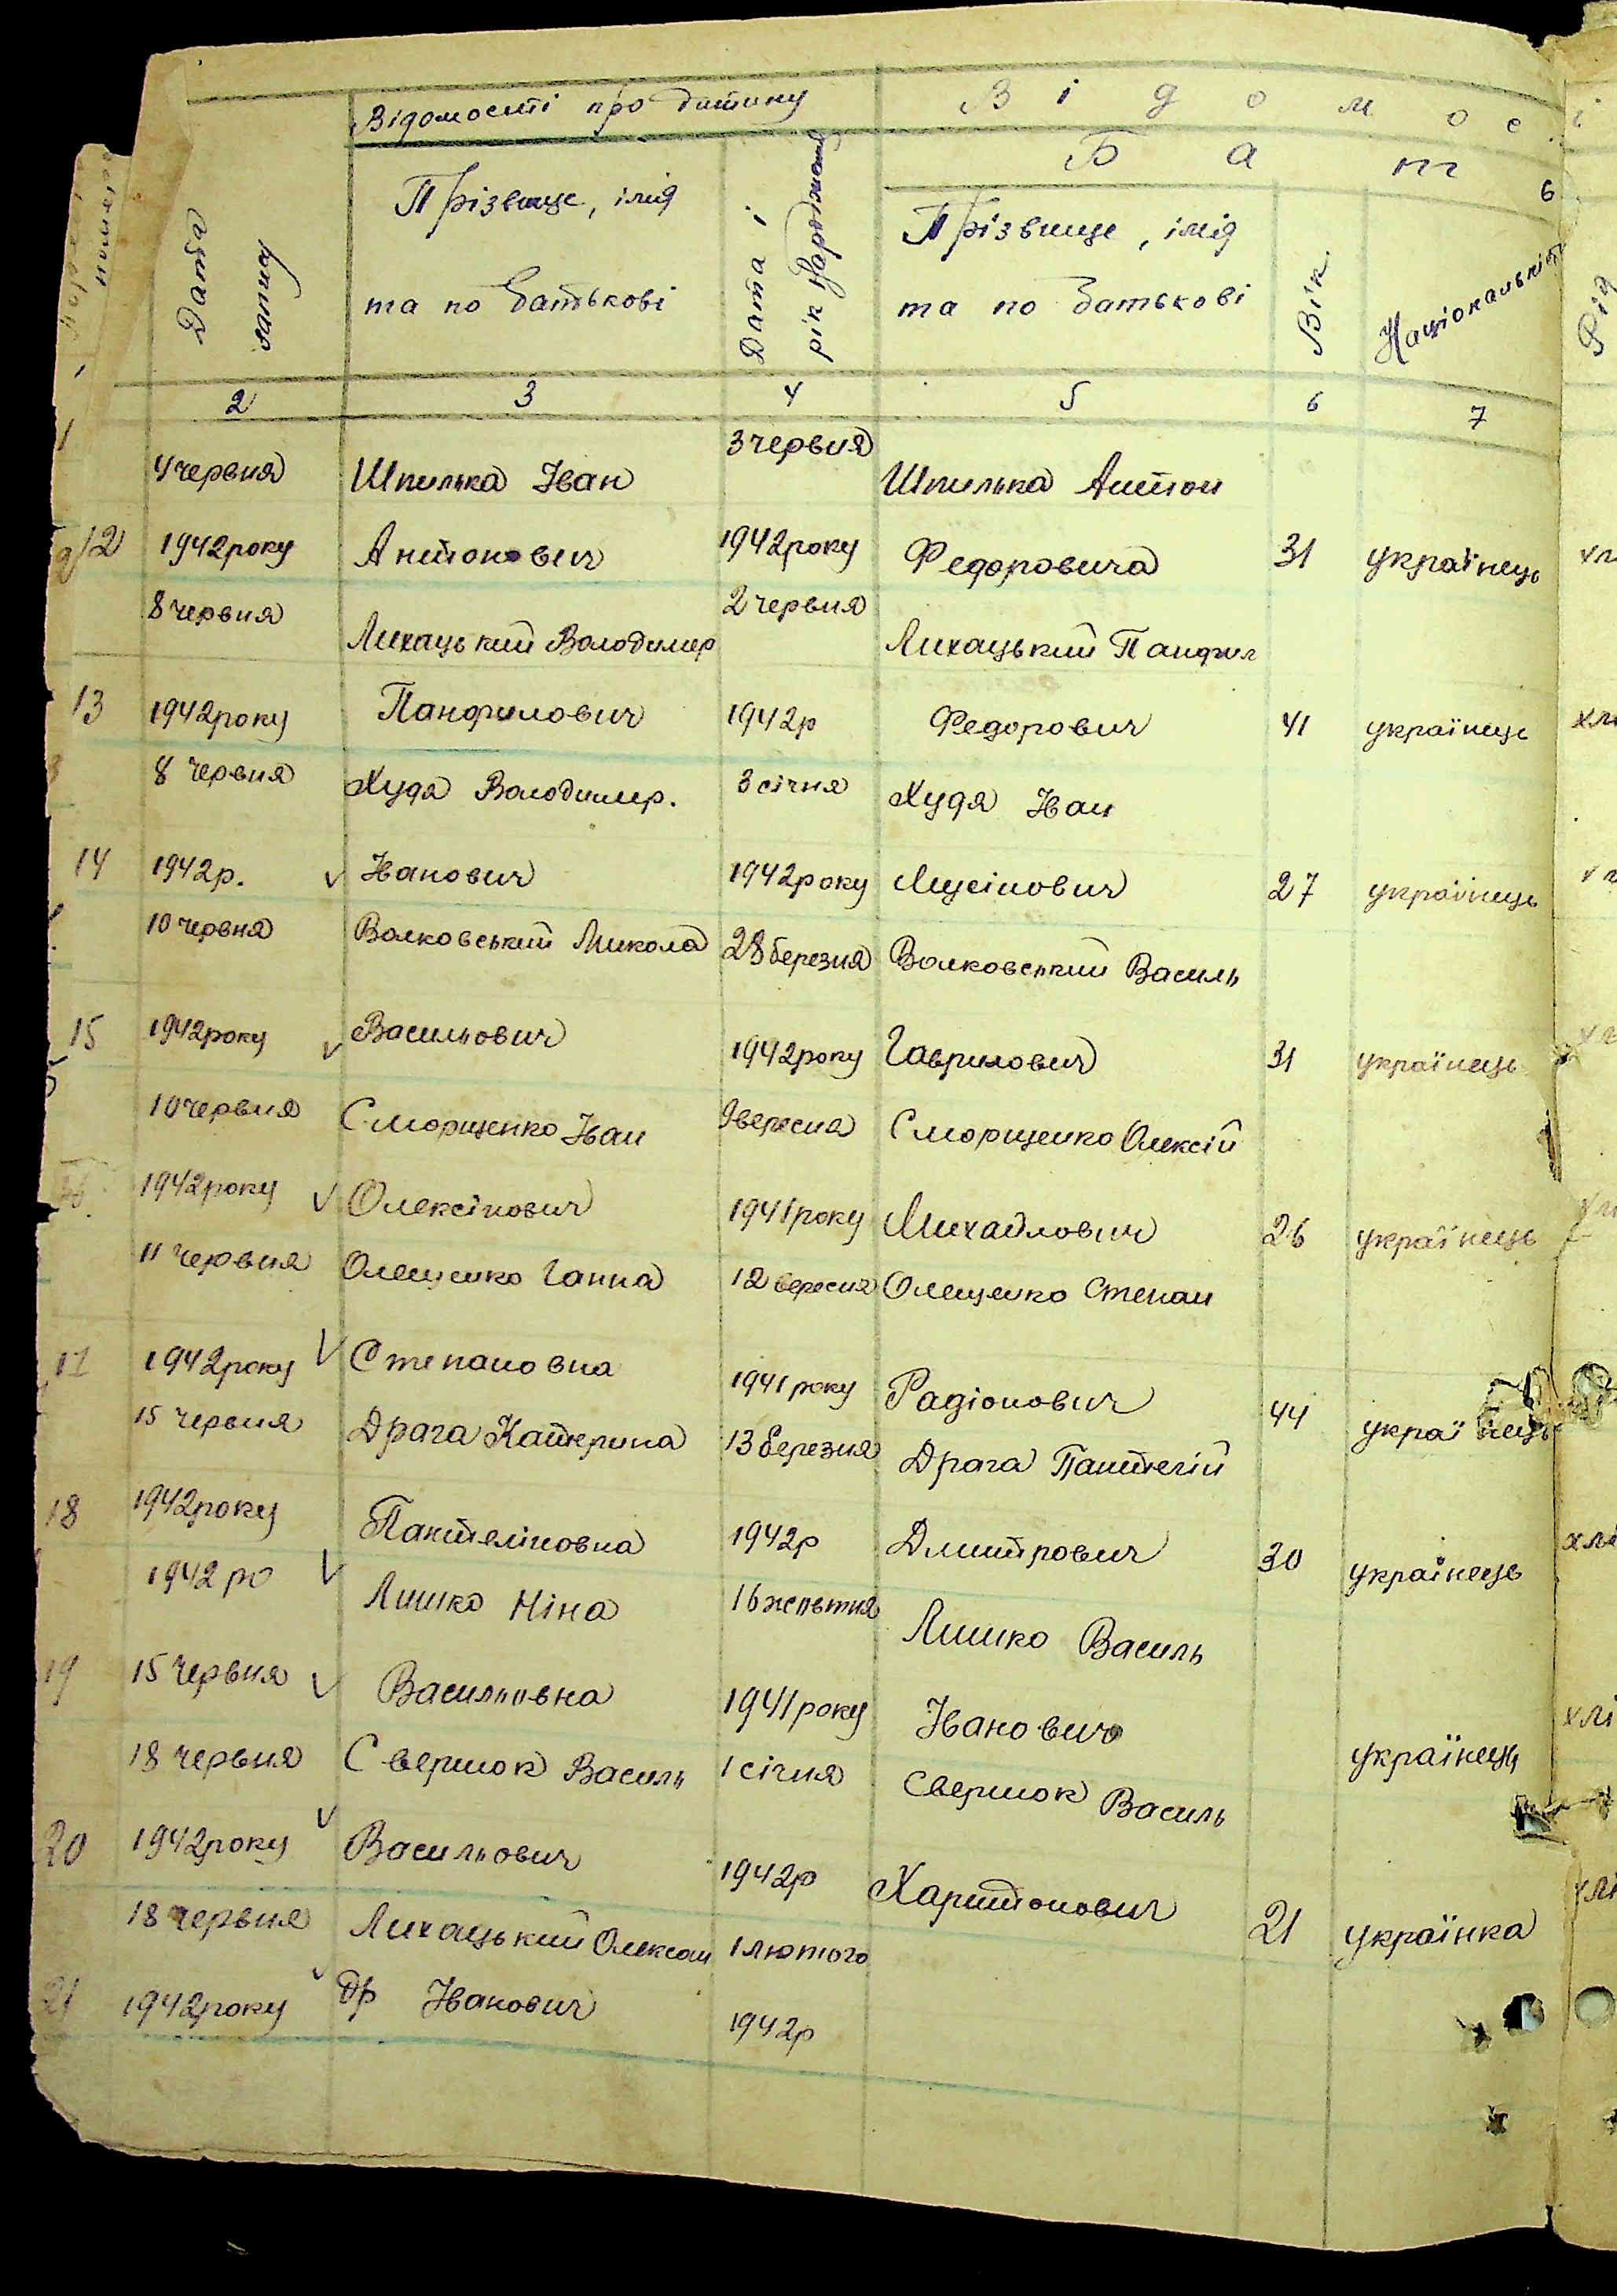 Відомості про дитину В і д о м о с
Б а т
6
Дата запису
Прізвище, імя
та по батькові
Дата і рік народження
Прізвище, імя
та по батькові
Вік
Національність
2 3 4 5 6 7
4 червня Шпилька Іван 3 червня Шпилька Антон
12 1942 року Антонович 1942 року Федоровича 31 українець
8 червня Лихацький Володимир 2 червня Лихацький Панфил
13 1942 року Панфилович 1942 р Федорович 41 українець хлі
8 червня Худя Володимир. 3 січня Худя Іван
14 1942 р. √ Іванович 1942 року Мусіиович 27 українець
10 червня Волковський Микола 28 березня Волковський Василь
15 1942 року √ Васильович 1942 року Гаврилович 31 українець
10 червня Сморщенко Іван 9 вересня Сморщенко Олексій
1942 року √ Олексіиович 1941 року Михайлович 26 українець
11 червня Олещенко Ганна 12 вересня Олещенко Степан
17 1942 року √ Степановна 1941 року Радіонович 44 українець
15 червня Драга Катерина 13 березня Драга Пантелій
18 1942 року Пантеліиовна 1942 р Дмитрович 30 українець хлі
1942 ро √ Лишко Ніна 16 жовтня Лишко Василь
19 15 червня √ Васильовна 1941 року Іванович українець хлі
18 червня Свершок Василь 1 січня Свершок Василь
20 1942 року √ Васильович 1942 р Харитонович 21 українка хлі
18 червня Лихацький Олексан 1 лютого
21 1942 року √ др Іванович 1942 р